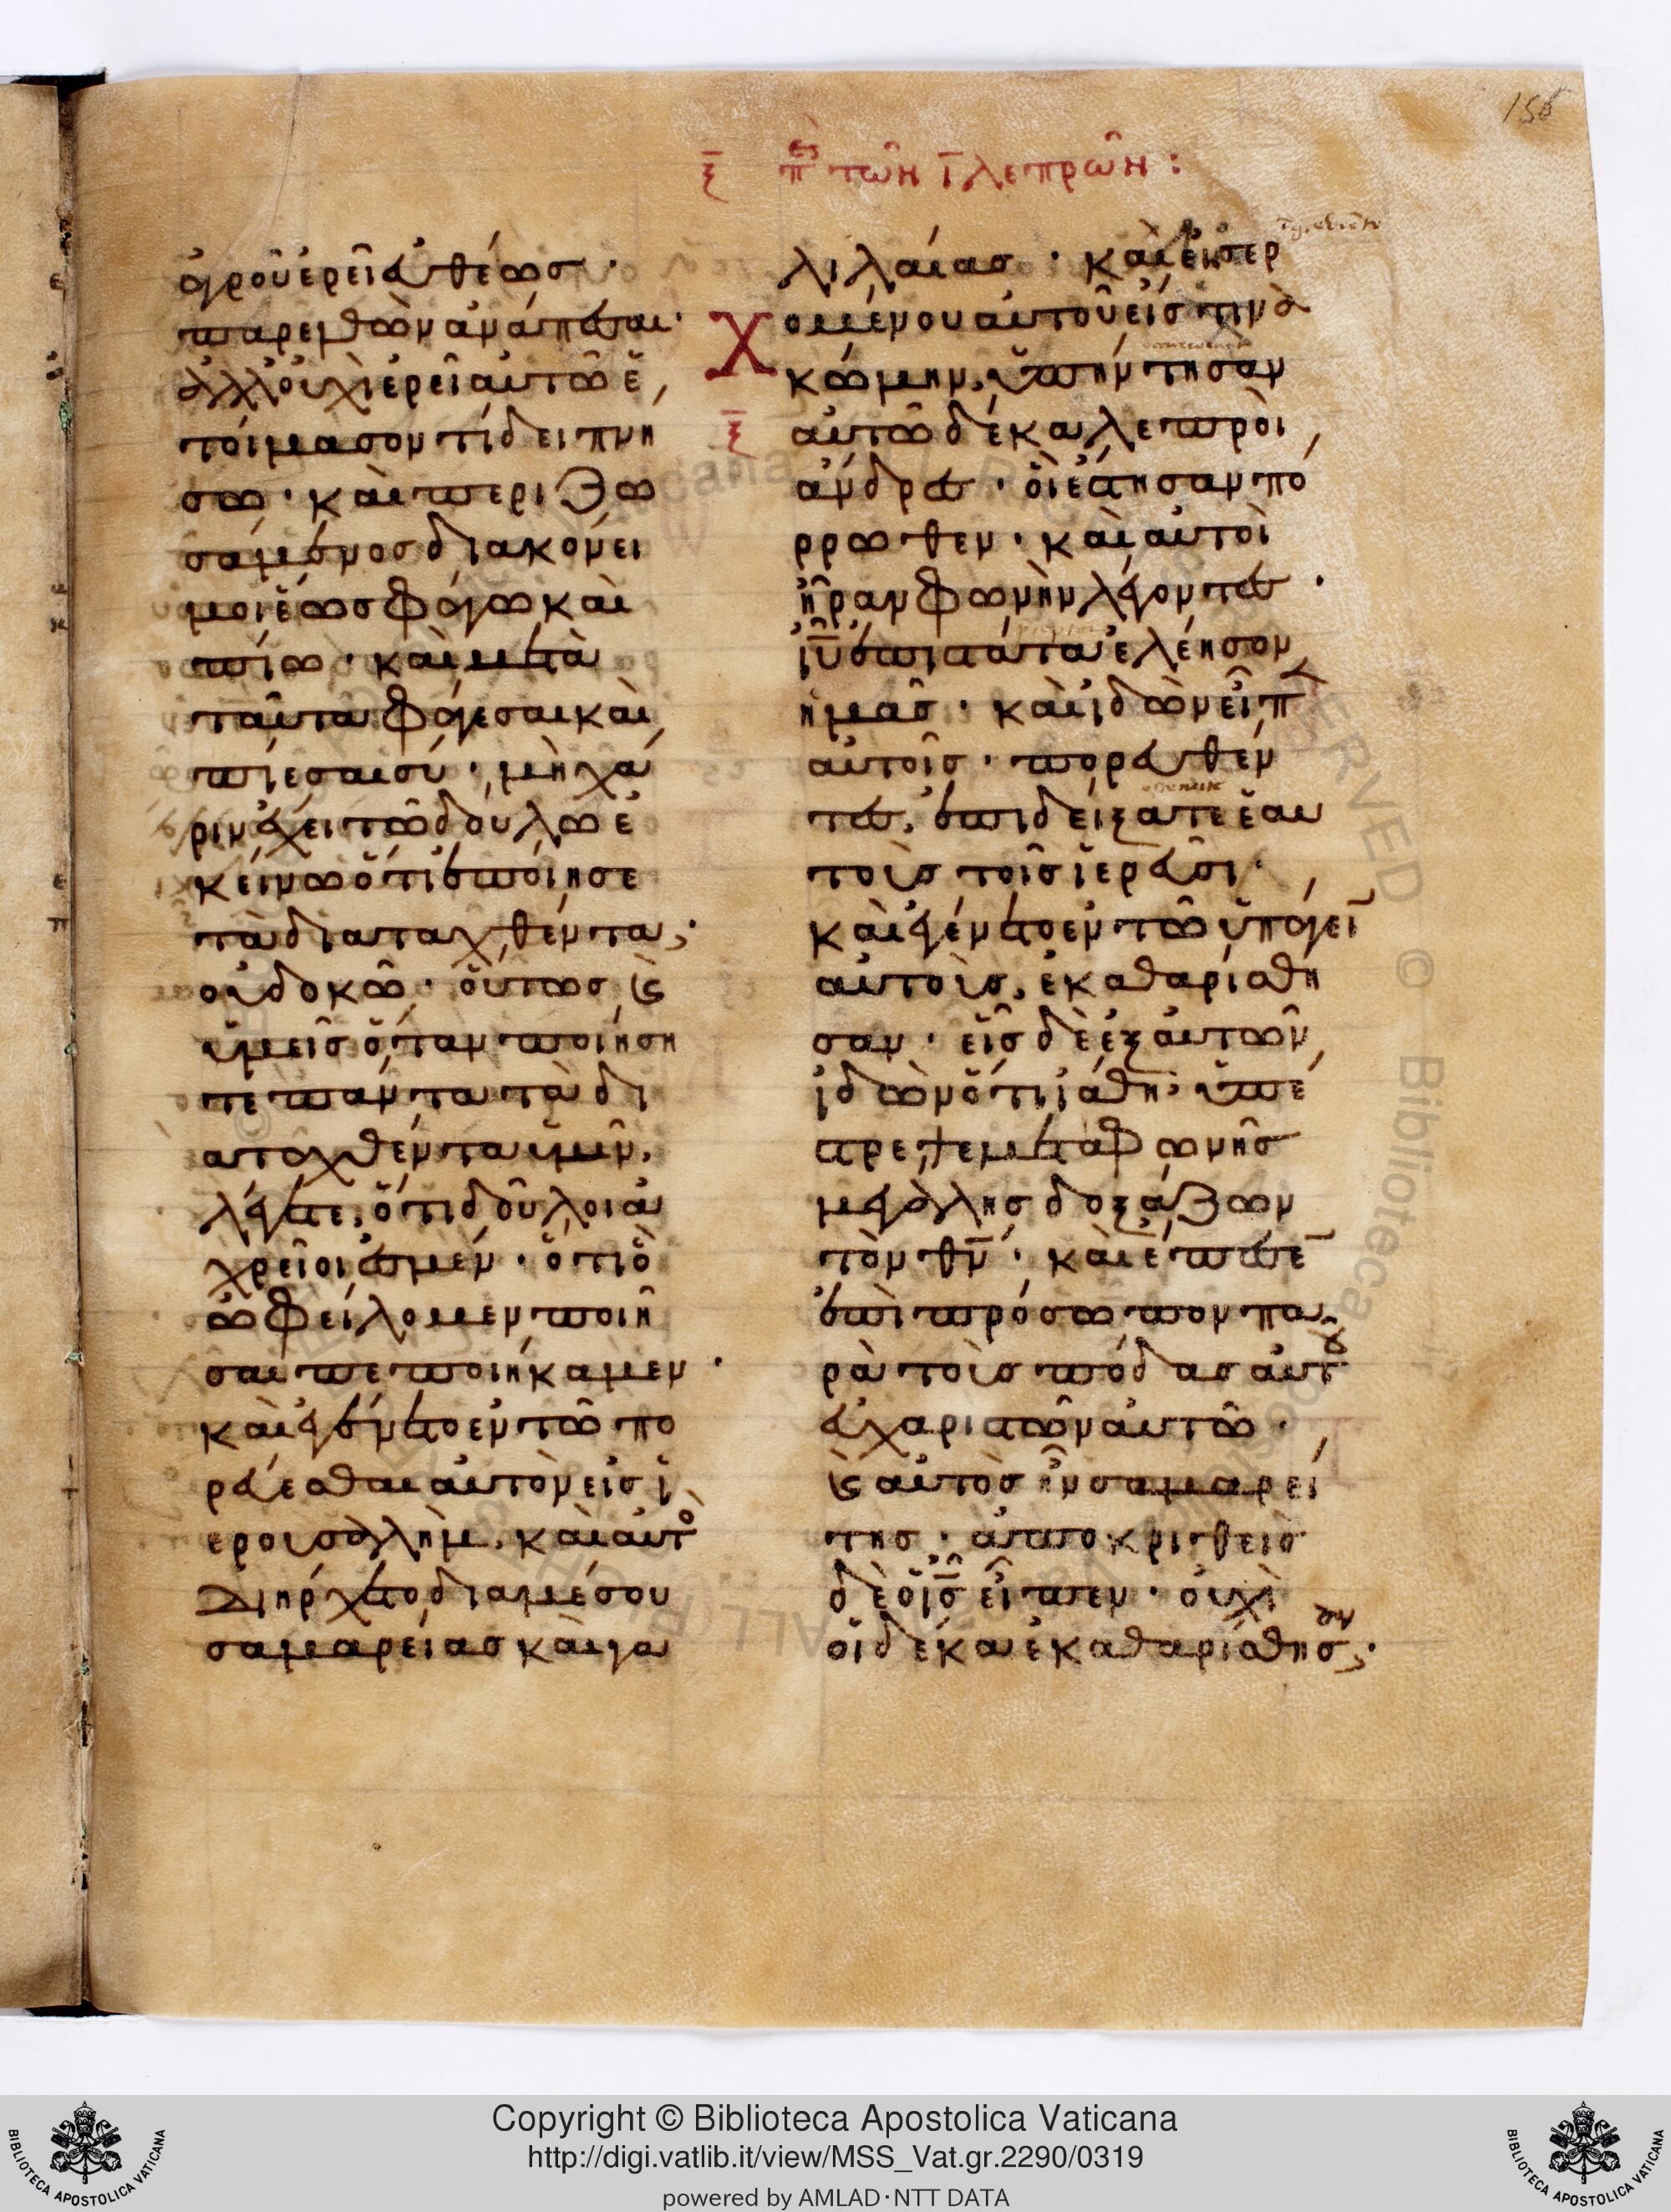 158
ξ̅ πε τῶν ι̅ λεπρῶν :
ἀγροῦ ἐρεῖ εὐθέως ·
παρελθὼν ἀνάπεσαι ·
ἀλλ οὐχὶ ἐρεῖ αὐτῶ ἑ
τοίμασον τί δειπνη
σω · καὶ περιζω
σάμενος διακόνει
μοι ἕως φάγω καὶ
πίω · καὶ μετὰ
ταῦτα φάγεσαι καὶ
πίεσαι σύ · μὴ χά
ριν ἔχει τῶ δούλω ἐ
κείνω ὅτι ἐποίησε
τὰ διαταχθέντα;
οὐ δοκῶ · οὕτως ϗ
ὑμεῖς ὅταν ποιήση
τε πάντα τὰ δι
αταχθέντα ὑμῖν,
λέγετε, ὅτι δοῦλοι ἀ
χρεῖοι ἐσμέν · ὅτι ὃ
ὠφείλομεν ποιῆ
σαι πεποιήκαμεν ·
καὶ ἐγένετο ἐν τῶ πο
ρεύεσθαι αὐτὸν εἰς ἱ
ερουσαλὴμ, καὶ αὐτο
διήρχετο διαμέσου
σαμαρείας καὶ γα
λιλαίας · καὶ εἰσερ
χομένου αὐτοῦ εἴς τινα
κώμην, ὑπήντησαν
ξ̅ αὐτῶ δέκα λεπροὶ
ἄνδρες · οἳ ἔστησαν πό
ρρωθεν · καὶ αὐτοὶ
ἦραν φωνὴν λέγοντες ·
ἰ̅υ̅ ἐπιστάτα ἐλέησον
ἡμᾶς · καὶ ἰδὼν εἶπ
αὐτοῖς · πορευθέν
τες, ἐπιδείξατε ἑαυ
τοὺς τοῖς ἱερεῦσι ·
καὶ ἐγένετο ἐν τῶ ὑπάγει̅
αὐτοὺς, ἐκαθαρίσθη
σαν · εἷς δὲ ἐξ αὐτῶν
ἰδὼν ὅτι ἰάθη, ὑπέ
στρεψε μετὰ φωνῆς
μεγάλης δοξάζων
τὸν θ̅ν̅ · καὶ ἔπεσε̅
ἐπὶ πρόσωπον πα
ρὰ τοὺς πόδας αὐτου
εὐχαριστῶν αὐτῶ ·
ϗ αὐτὸς ἦν σαμαρεί
της · ἀποκριθεὶς
δὲ ὁ ι̅ς̅ εἶπεν · οὐχὶ
οἱ δέκα ἐκαθαρίσθησαν;
Copyright © Biblioteca Apostolica Vaticana
http://digi.vatlib.it/view/MSS_Vat.gr.2290/0319
powered by AMLAD·NTT DATA
BIBLIOTECA APOSTOLICA VATICANA
BIBLIOTECA APOSTOLICA VATICANA